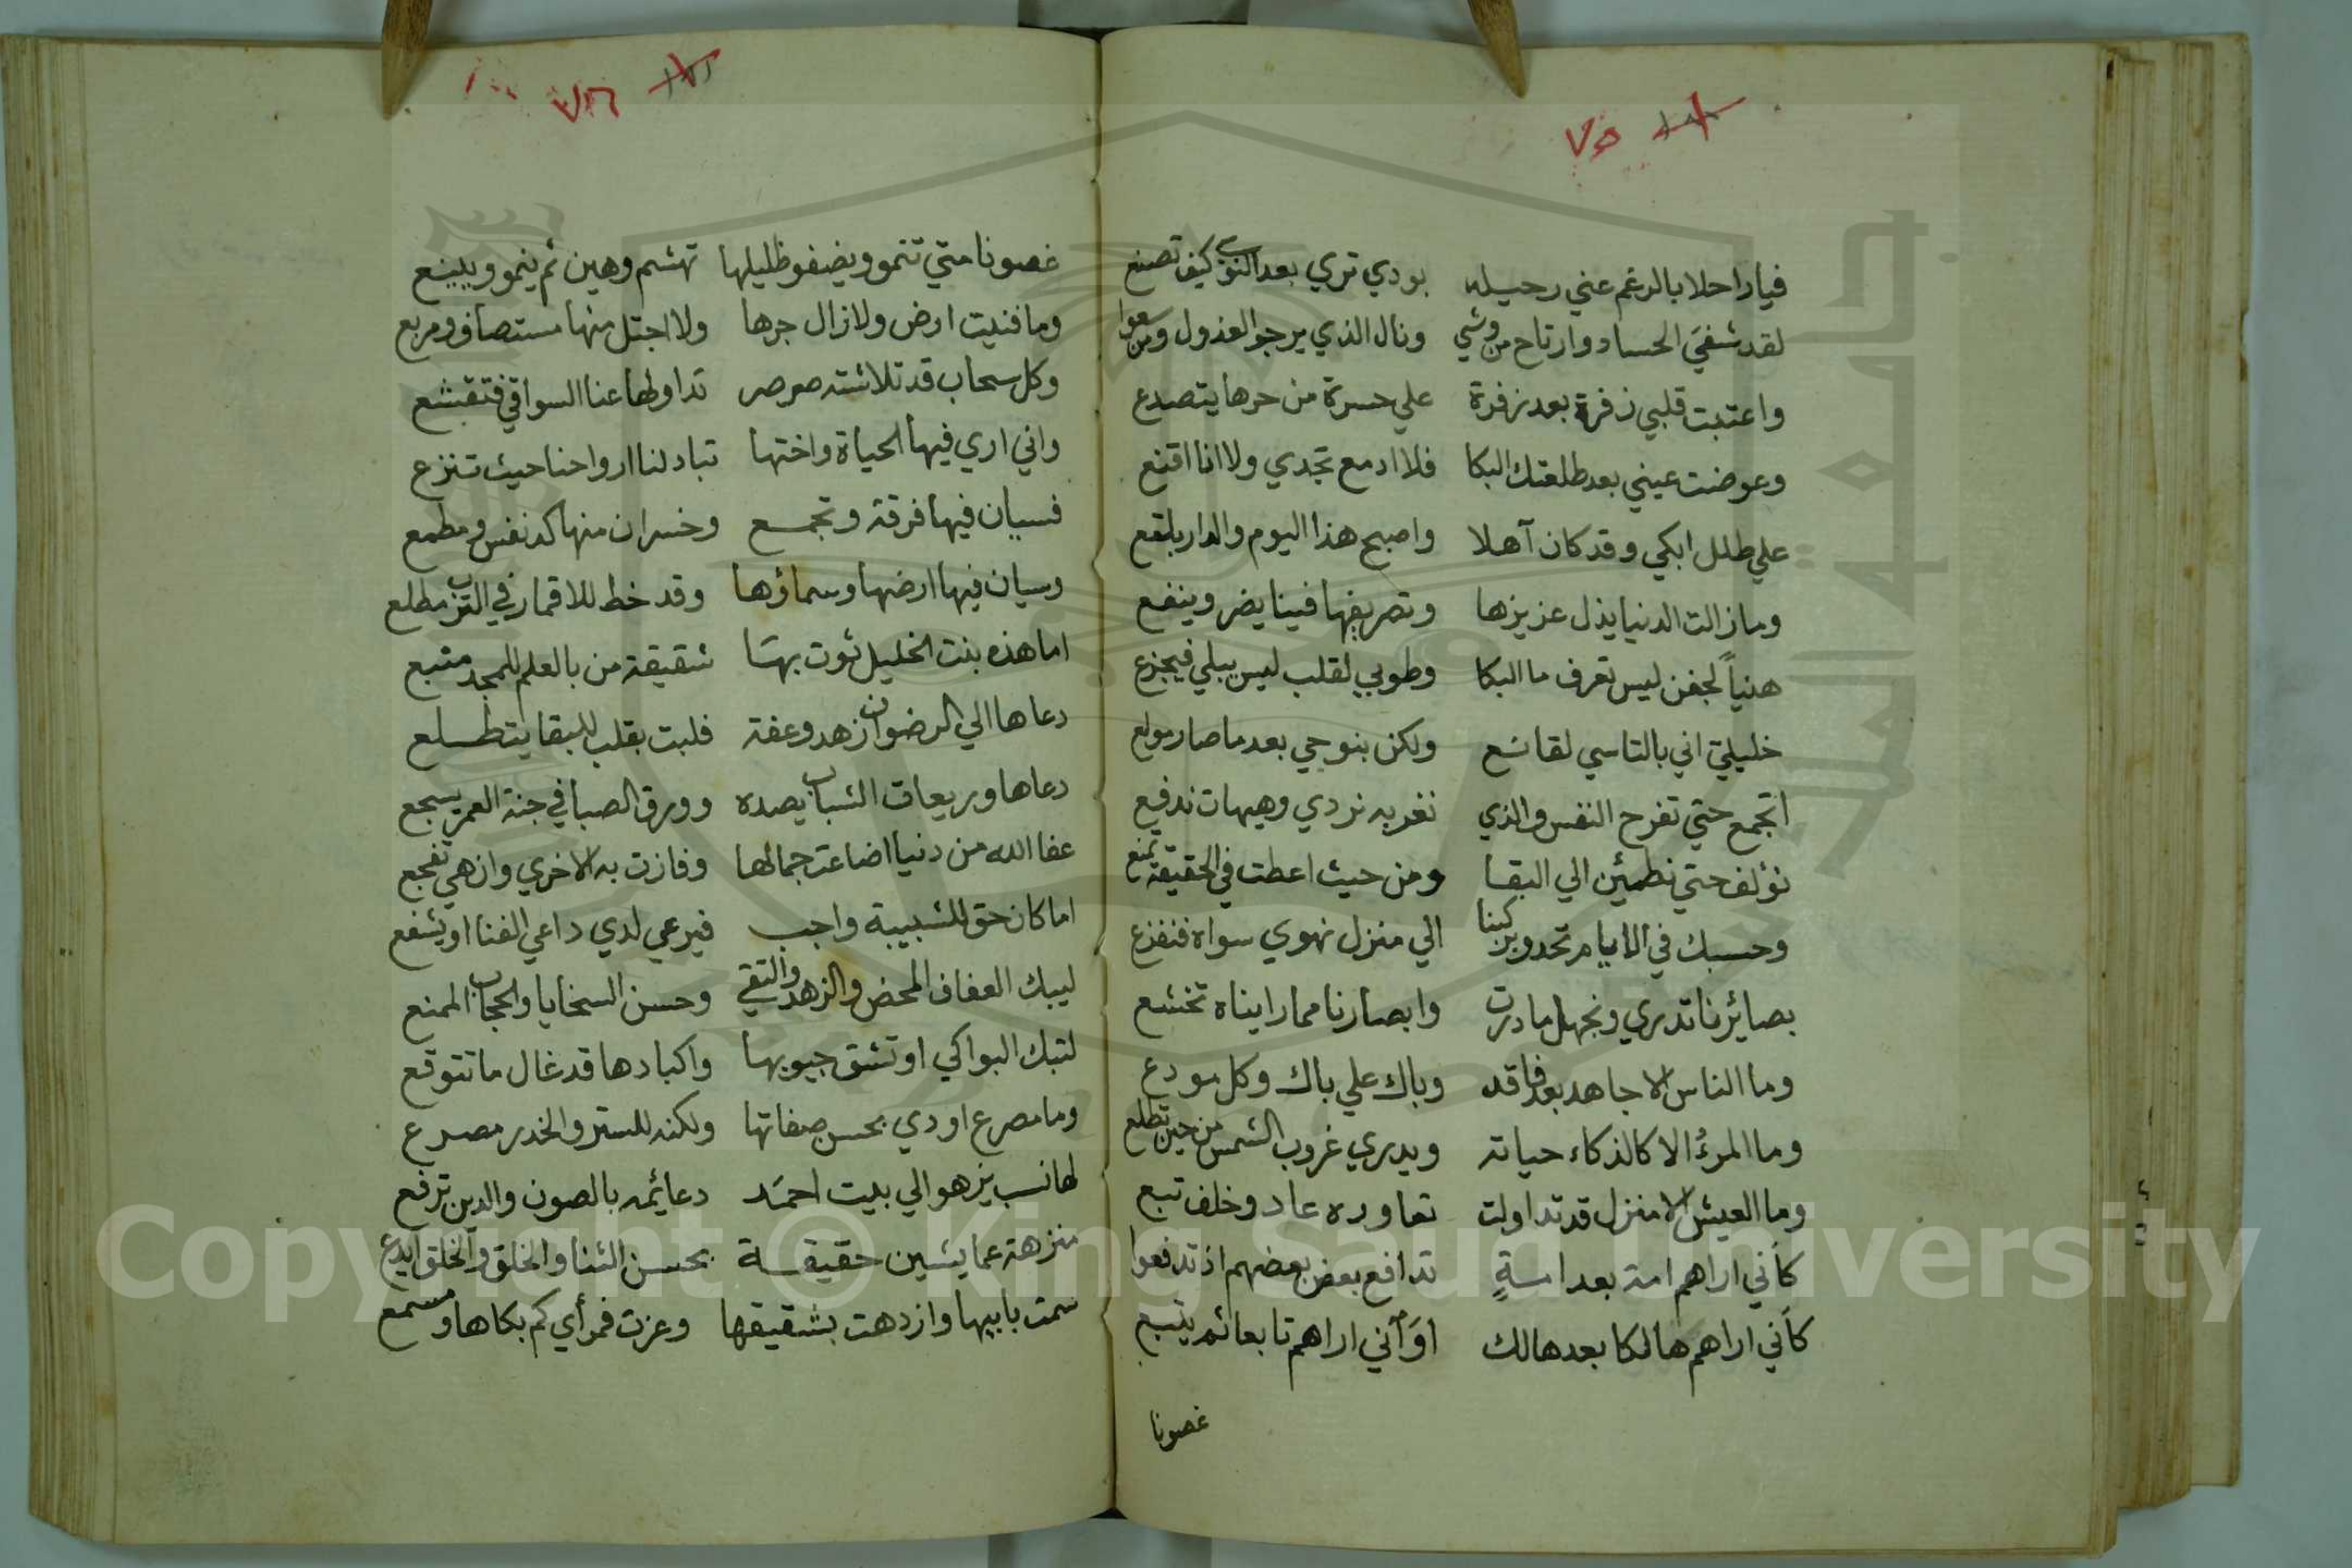 ٧٥
فيا راحلا بالرغم عني رحيله بودي تري بعد النوي كيف تصنع
لقد شفي الحساد وارتاح من وشي ونال الذي يرجو العذول ومن سعوا
واعتبت قلبي زفرة بعد زفرة علي حسرة من حرها يتصدع
وعوضت عيني بعد طلعتك البكا فلا ادمع تجدي ولا انا اقنع
علي طلل ابكي وقد كان آهلا واصبح هذا اليوم والدار بلقع
وما زالت الدنيا يذل عزيزها وتصريفها فينا يضر وينفع
هنياً لجفن ليس تعرف ما البكا وطوبي لقلب ليس يبلي فيجزع
خليلي اني بالتاسي لقانع ولكن بنوحي بعد ما صار مولع
انجمع حتي تفرح النفس والذي نغر به نردي وهيهات ندفع
نؤلف حتي نطمئن الي البقا ومن حيث اعطت في الحقيقة تمنع
وحسبك في الايام تحدو بركبنا الي منزل نهوي سواه فنفزع
بصائرنا تدري ونجهل ما درت وابصارنا مما رايناه تخشع
وما الناس الا جاهد بعد فاقد وباك علي باك وكل مودع
وما المرءُ الا كالذكاء حياته ويدري غروب الشمس من حين تطلع
وما العيش الا منزل قد تداولت تعاوره عاد وخلف تبع
كأني اراهم امة بعد امةٍ تدافع بعض بعضهم اذ تدفعوا
كأني اراهم هالكا بعد هالك او أني اراهم تابعا ثم يتبع
غصونا
غصونا متي تنمو ويضفو ظليلها تهشم وهين ثم ينمو ويينع
وما فنيت ارض ولا زال جرها ولا اجتل منها مستصاف ومربع
وكل سحاب قد تلاشته صرصر تداولها عنا السوافي فتقشع
واني اري فيها الحياة واختها تبادلنا ارواحنا حيث تنزع
فسيان فيها فرقة وتجمع وخسران منها كد نفس ومطمع
وسيان فيها ارضها وسماؤها وقد خط للاقمار في الترب مطلع
اما هذه بنت الخليل ثوت بها شقيقة من بالعلم للمجد متبع
دعاها الي الرضوان زهد وعفة فلبت بقلب للبقا يتطلع
دعاها وريعان الشباب يصده وورق الصبا في جنة العمر يسجع
عفا الله من دنيا اضاعت جمالها وفازت به الاخري واذ هي تفجع
اما كان حق للشبيبة واجب فيرعي لدي داعي الفنا او يشفع
ليبك العفاف المحض والزهد والتقي وحسن السخايا والحجاب الممنع
لتبك البواكي او تشق جيوبها واكبادها قد غال ما تتوقع
وما مصرع اودي بحسن صفاتها ولكنه للستر والخدر مصرع
لها نسب يزهو الي بيت احمد دعائمه بالصون والدين ترفع
منزهة عما يشين حقيقة بحسن الثنا والخلق والخلق ابدع
سمت بابيها وازدهت بشقيقها وعزت فمرأي كم بكاها ومسمع
Copyright © King Saud University